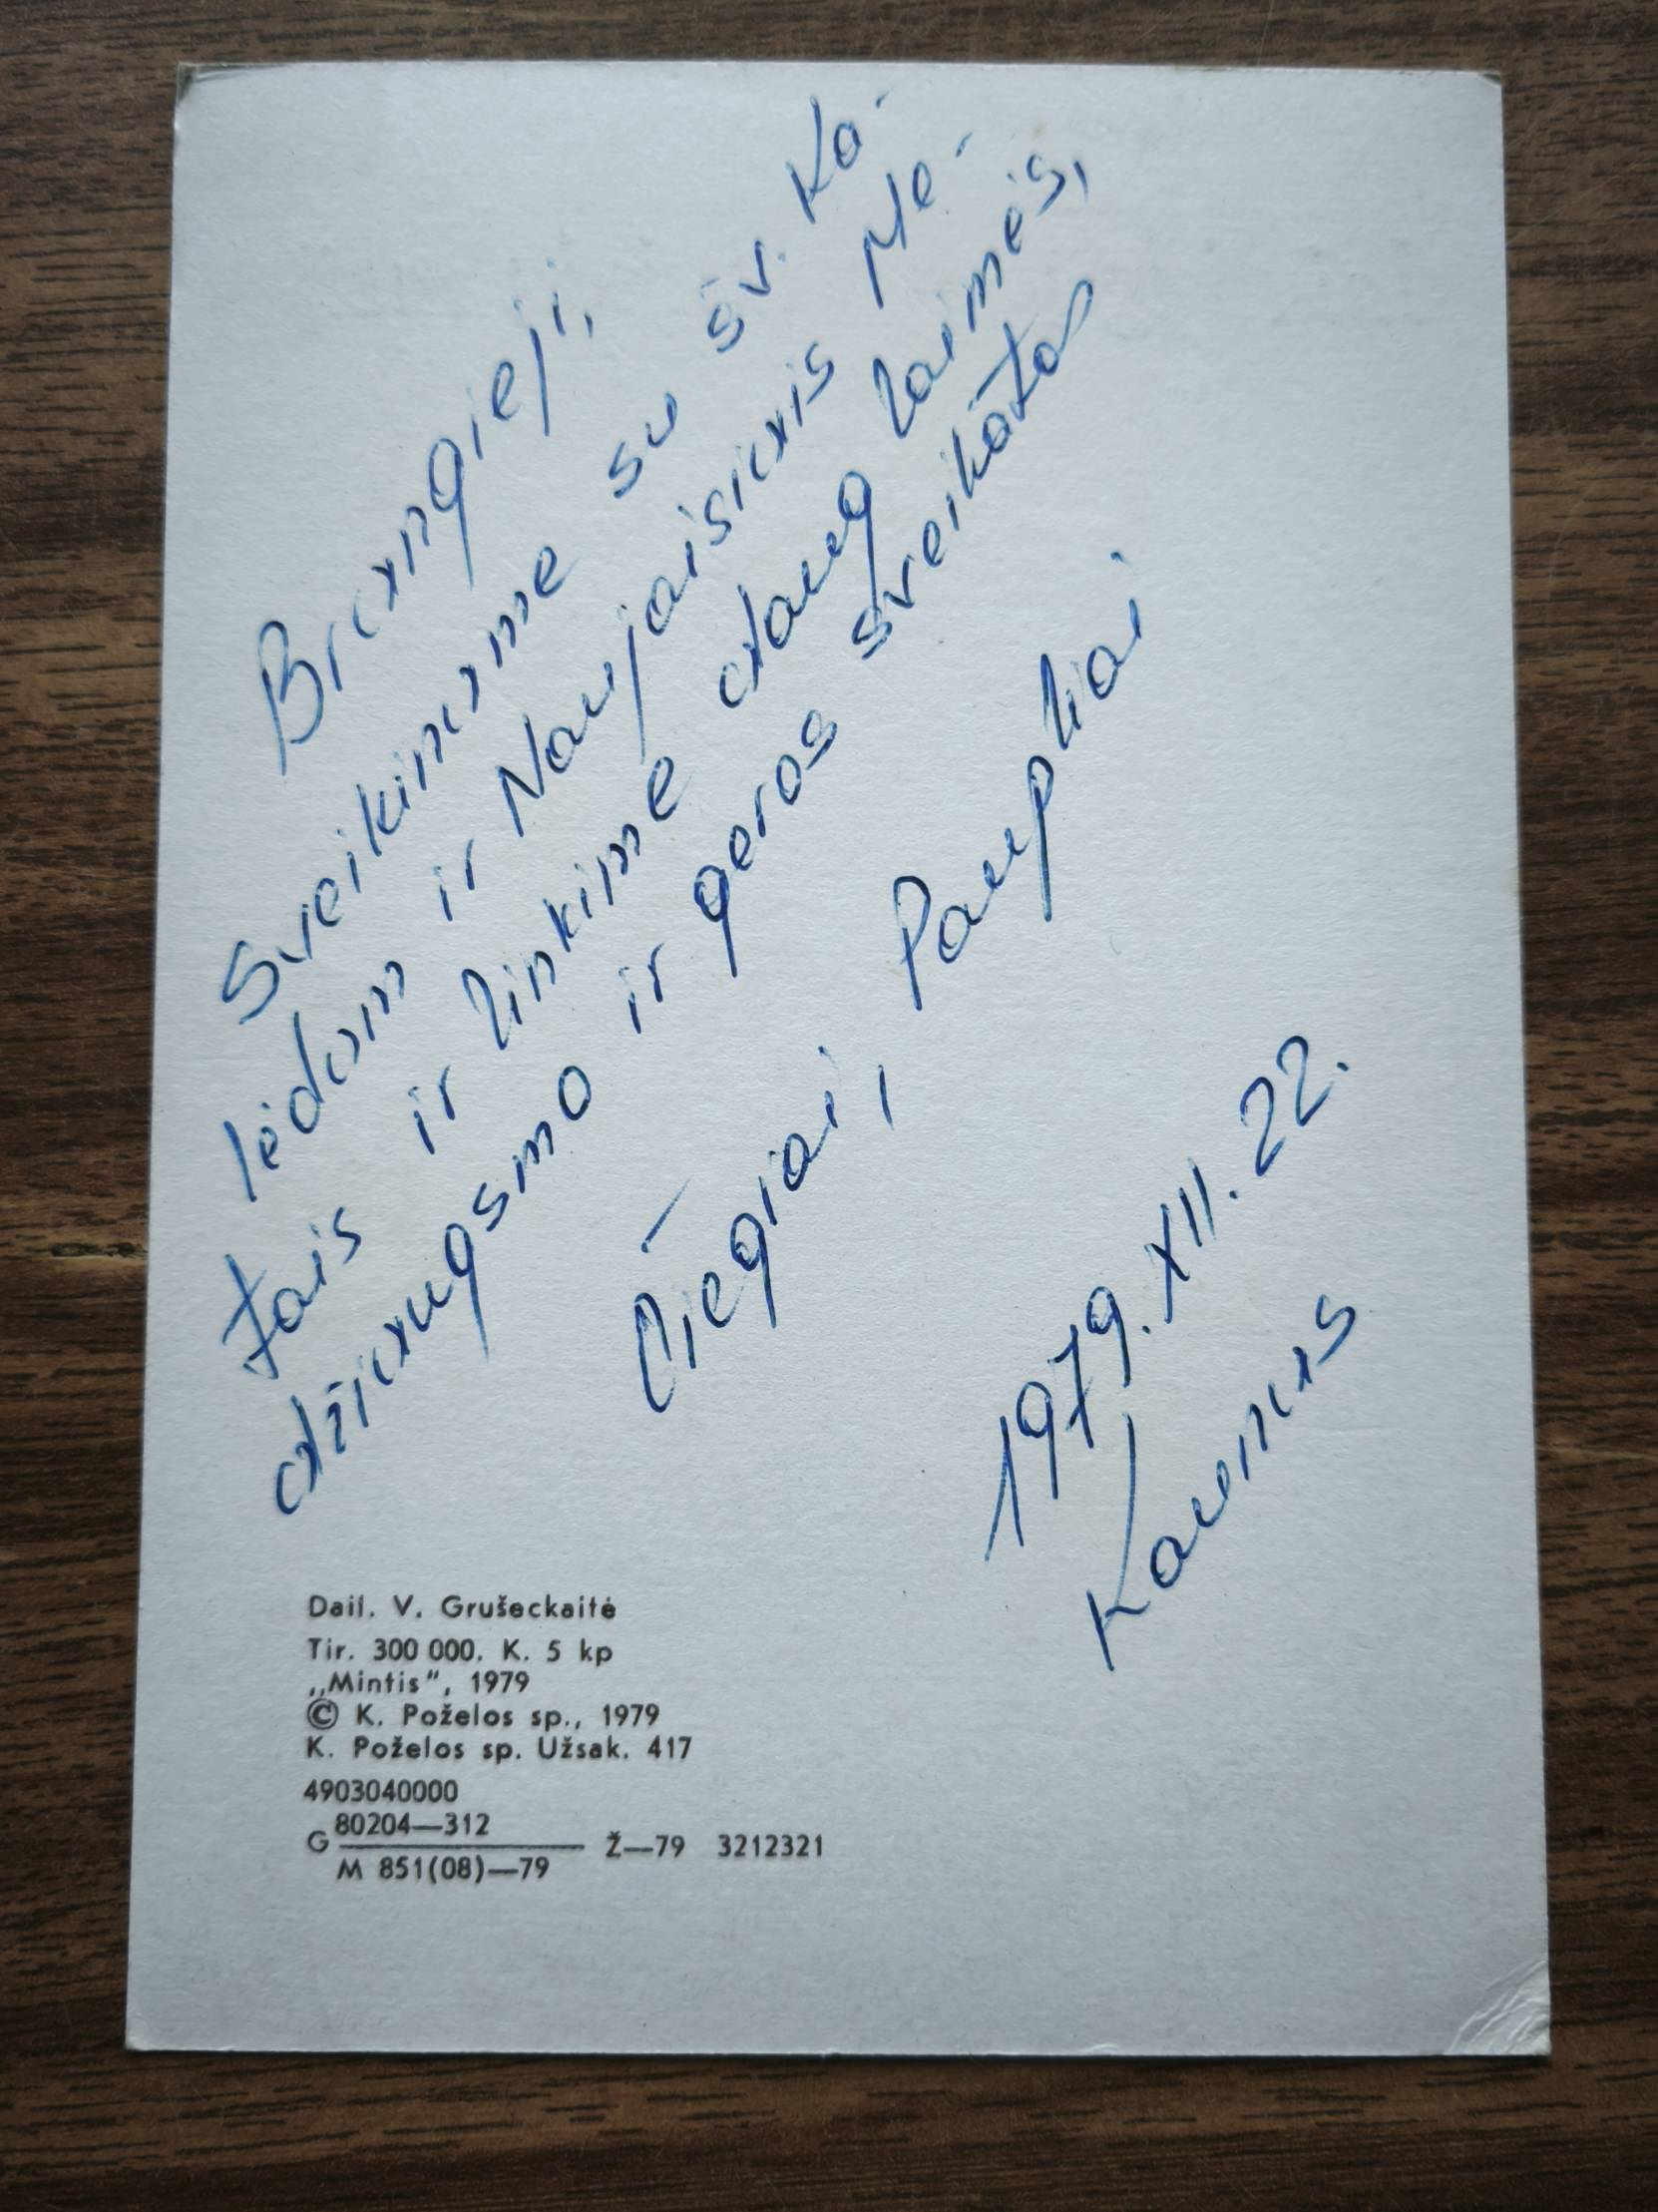 Brangieji,
Sveikiname su šv. Ka-
lėdom ir Naujaisiais Me-
tais ir linkime daug laimės,
džiaugsmo ir geros sveikatos
Čiegiai, Paupliai
1979.XII.22.
Kaunas
Dail. V. Grušeckaitė
Tir. 300 000. K. 5 kp
„Mintis“, 1979
© K. Poželos sp., 1979
K. Poželos sp. Užsak. 417
4903040000
G 80204—312
M 851(08)—79 Ž—79 3212321